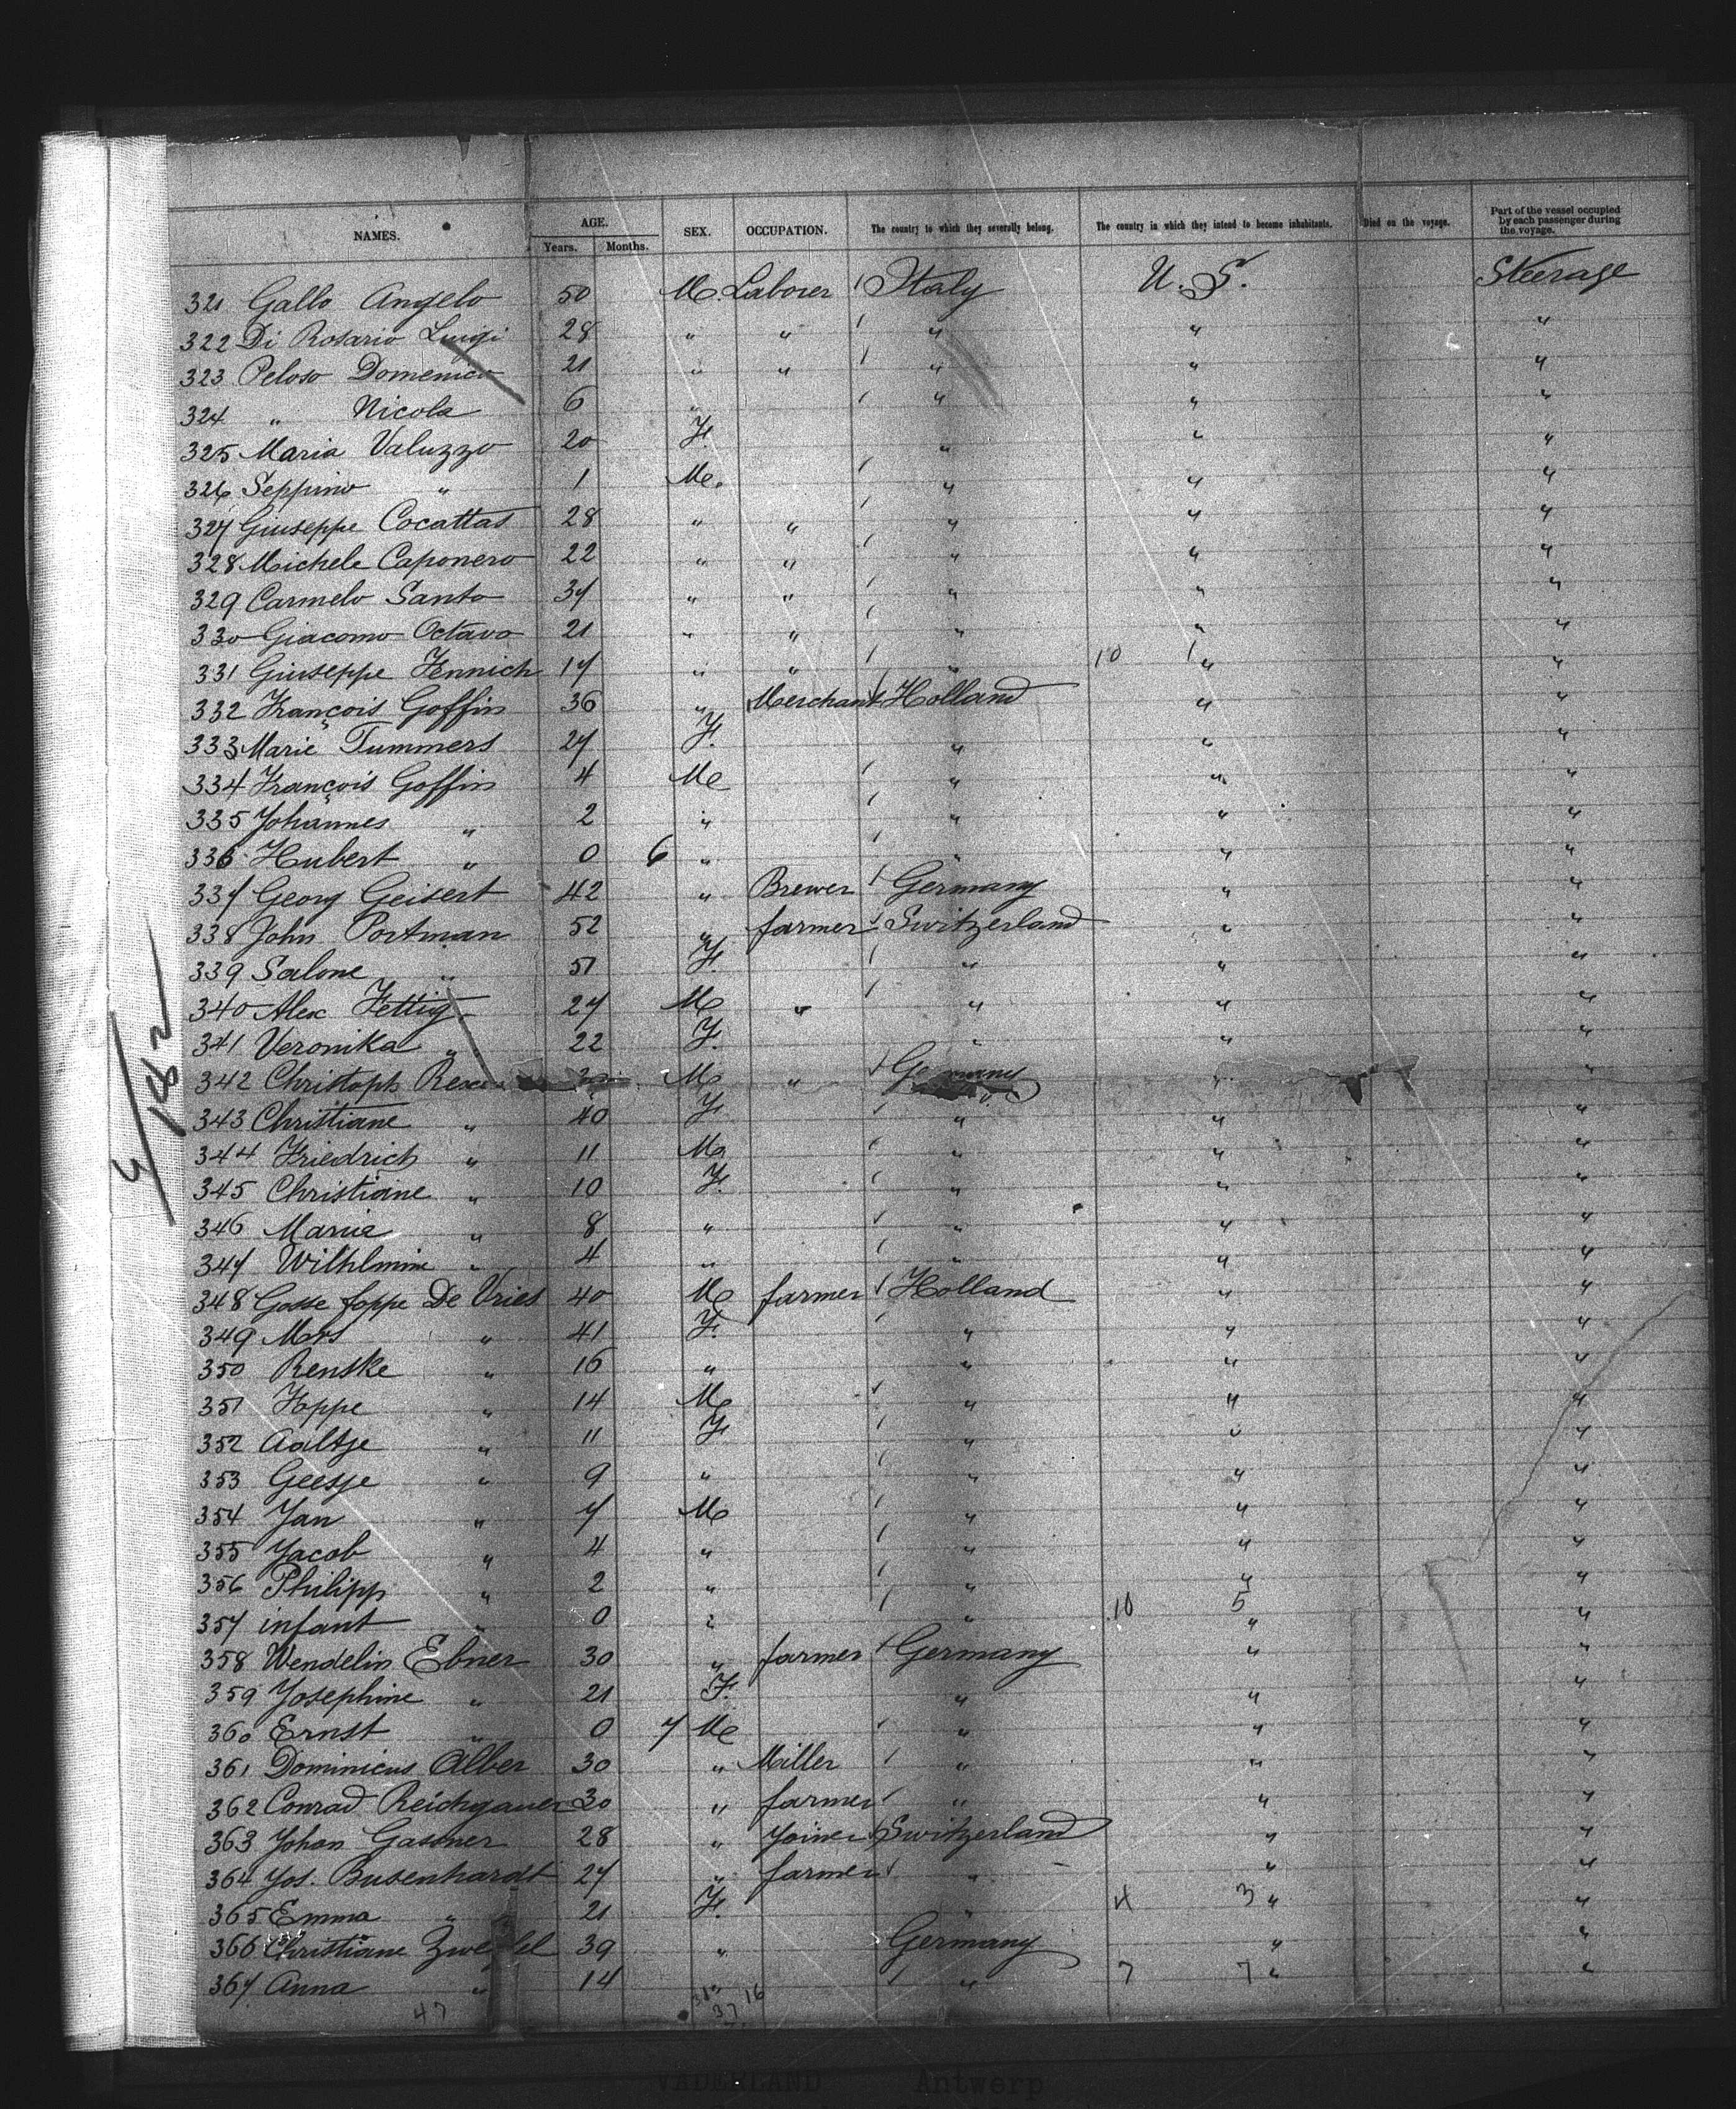 NAMES. AGE. SEX. OCCUPATION. The country to which they severally belong. The country in which they intend to become inhabitants. Died on the voyage. Part of the vessel occupied by each passenger during the voyage.
Years. Months.
321 Gallo Angelo 50 M. Laborer / Italy U. S. Steerage
322 Di Rosario Luigi 28 " " / " " "
323 Peloso Domenico 21 " " / " " "
324 " Nicola 6 " / " " "
325 Maria Valuzzo 20 F. " " "
326 Seppino " 1 M. / " " "
327 Giuseppe Cocattas 28 " " / " " "
328 Michele Caponero 22 " " / " " "
329 Carmelo Santo 37 " " / " " "
330 Giacomo Octavo 21 " " / " " "
331 Giuseppe Fennich 17 " " / " 10 1 " "
332 François Goffin 36 " Merchant / Holland " "
333 Marie Tummers 27 F. " " "
334 François Goffin 4 M / " " "
335 Johannes " 2 " / " " "
336 Hubert " 0 6 " / " " "
337 Georg Geisert 42 " Brewer / Germany " "
338 John Portman 52 " farmer / Switzerland " "
339 Salone " 51 F. / " " "
340 Alex Fettig 27 M " / " " "
341 Veronika " 22 F. " " "
342 Christoph M " / Germany " "
343 Christiane " 40 F / " " "
344 Friedrich " 11 M / " " "
345 Christiane " 10 F. / " " "
346 Marie " 8 " / " " "
347 Wilhlmine " 4 " / " " "
348 Gosse foppe De Vries 40 M farmer / Holland " "
349 Mrs " 41 F. / " " "
350 Renske " 16 " " " "
351 Foppe " 14 M / " " "
352 Aaltje " 11 F / " " "
353 Geesje " 9 " / " " "
354 Jan " 7 M / " " "
355 Jacob " 4 " / " " "
356 Philipp " 2 " / " " "
357 infant " 0 " / " 10 5 " "
358 Wendelin Ebner 30 " farmer / Germany " "
359 Josephine " 21 F. " " "
360 Ernst " 0 7 M / " " "
361 Dominicus Alber 30 " Miller / " " "
362 Conrad Reichgauer 30 " farmer / " " "
363 Johan Gassner 28 " Joiner / Switzerland " "
364 Jos. Busenhardt 27 " farmer / " " "
365 Emma " 21 F. " 4 3 " "
366 Christiane 39 " Germany " "
367 Anna " 14 / " 7 7 " "
47 37 16
VADERLAND Antwerp